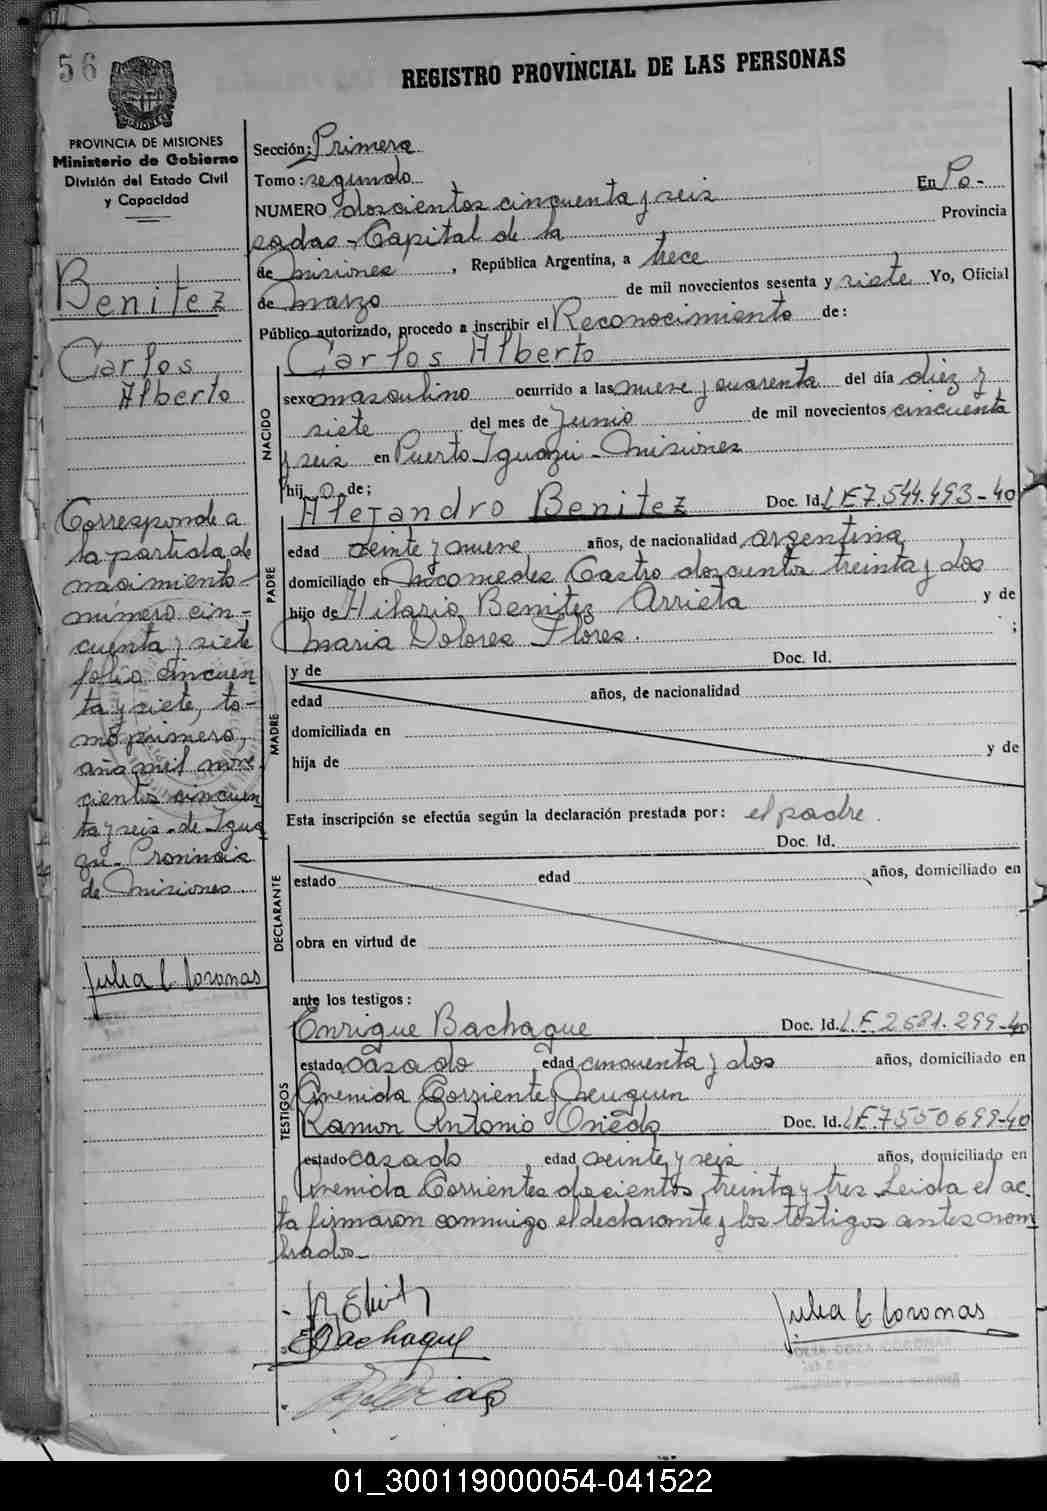 56
REGISTRO PROVINCIAL DE LAS PERSONAS
PROVINCIA DE MISIONES
Ministerio de Gobierno
División del Estado Civil
y Capacidad
Benitez
Carlos
Alberto
Corresponde a
la partida de
nacimiento
número cin-
cuenta y siete
folio cincuen
ta y siete, to-
mo primero,
año mil nove
cientos cincuen
ta y seis - de Igua
zú - Provincia
de Misiones
Julia C. Coronas
Sección: Primera
Tomo: segundo
NUMERO doscientos cincuenta y seis En Po-
sadas - Capital de la Provincia
de Misiones, República Argentina, a trece
de Marzo de mil novecientos sesenta y siete Yo, Oficial
Público autorizado, procedo a inscribir el Reconocimiento de:
Carlos Alberto
NACIDO
sexo masculino ocurrido a las nueve y cuarenta del día diez y
siete del mes de Junio de mil novecientos cincuenta
y seis en Puerto Iguazú - Misiones
hijo de;
Alejandro Benitez Doc. Id. LE 7.544.493-40
PADRE
edad veinte y nueve años, de nacionalidad argentina
domiciliado en Nicomedes Castro doscientos treinta y dos
hijo de Hilario Benitez Arrieta y de
Maria Dolores Flores. ;
Doc. Id.
MADRE
y de
edad años, de nacionalidad
domiciliada en
hija de y de
Esta inscripción se efectúa según la declaración prestada por: el padre.
Doc. Id.
DECLARANTE
estado edad años, domiciliado en
obra en virtud de
ante los testigos:
TESTIGOS
Enrique Bachaque Doc. Id. L.E 2681.299-40
estado casado edad cincuenta y dos años, domiciliado en
Avenida Corriente y Neuquen
Ramon Antonio Oviedo Doc. Id. LE.7550699-40
estado casado edad veinte y seis años, domiciliado en
Avenida Corrientes doscientos treinta y tres Leida el ac-
ta firmaron conmigo el declarante y los testigos antes nom
brados-
EBachaque
Julia C. Coronas
01_300119000054-041522